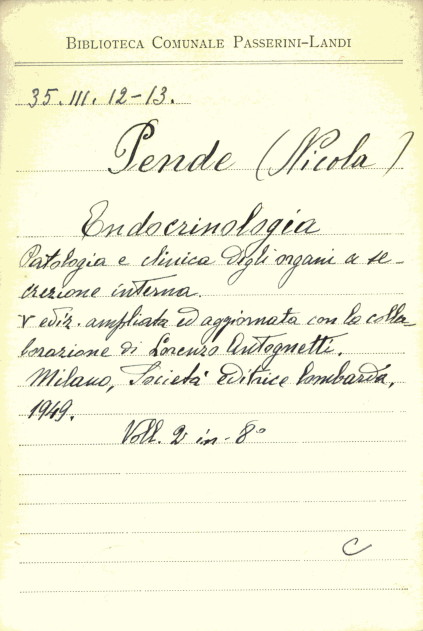 BIBLIOTECA COMUNALE PASSERINI-LANDI
35. III. 12-13.
Pende (Nicola)
Endocrinologia
Patologia e clinica degli organi a se-
crezione interna.
V ediz. ampliata ed aggiornata con la colla-
borazione di Lorenzo Antognetti.
Milano, Società Editrice lombarda,
1949.
Voll. 2 in-8°
C